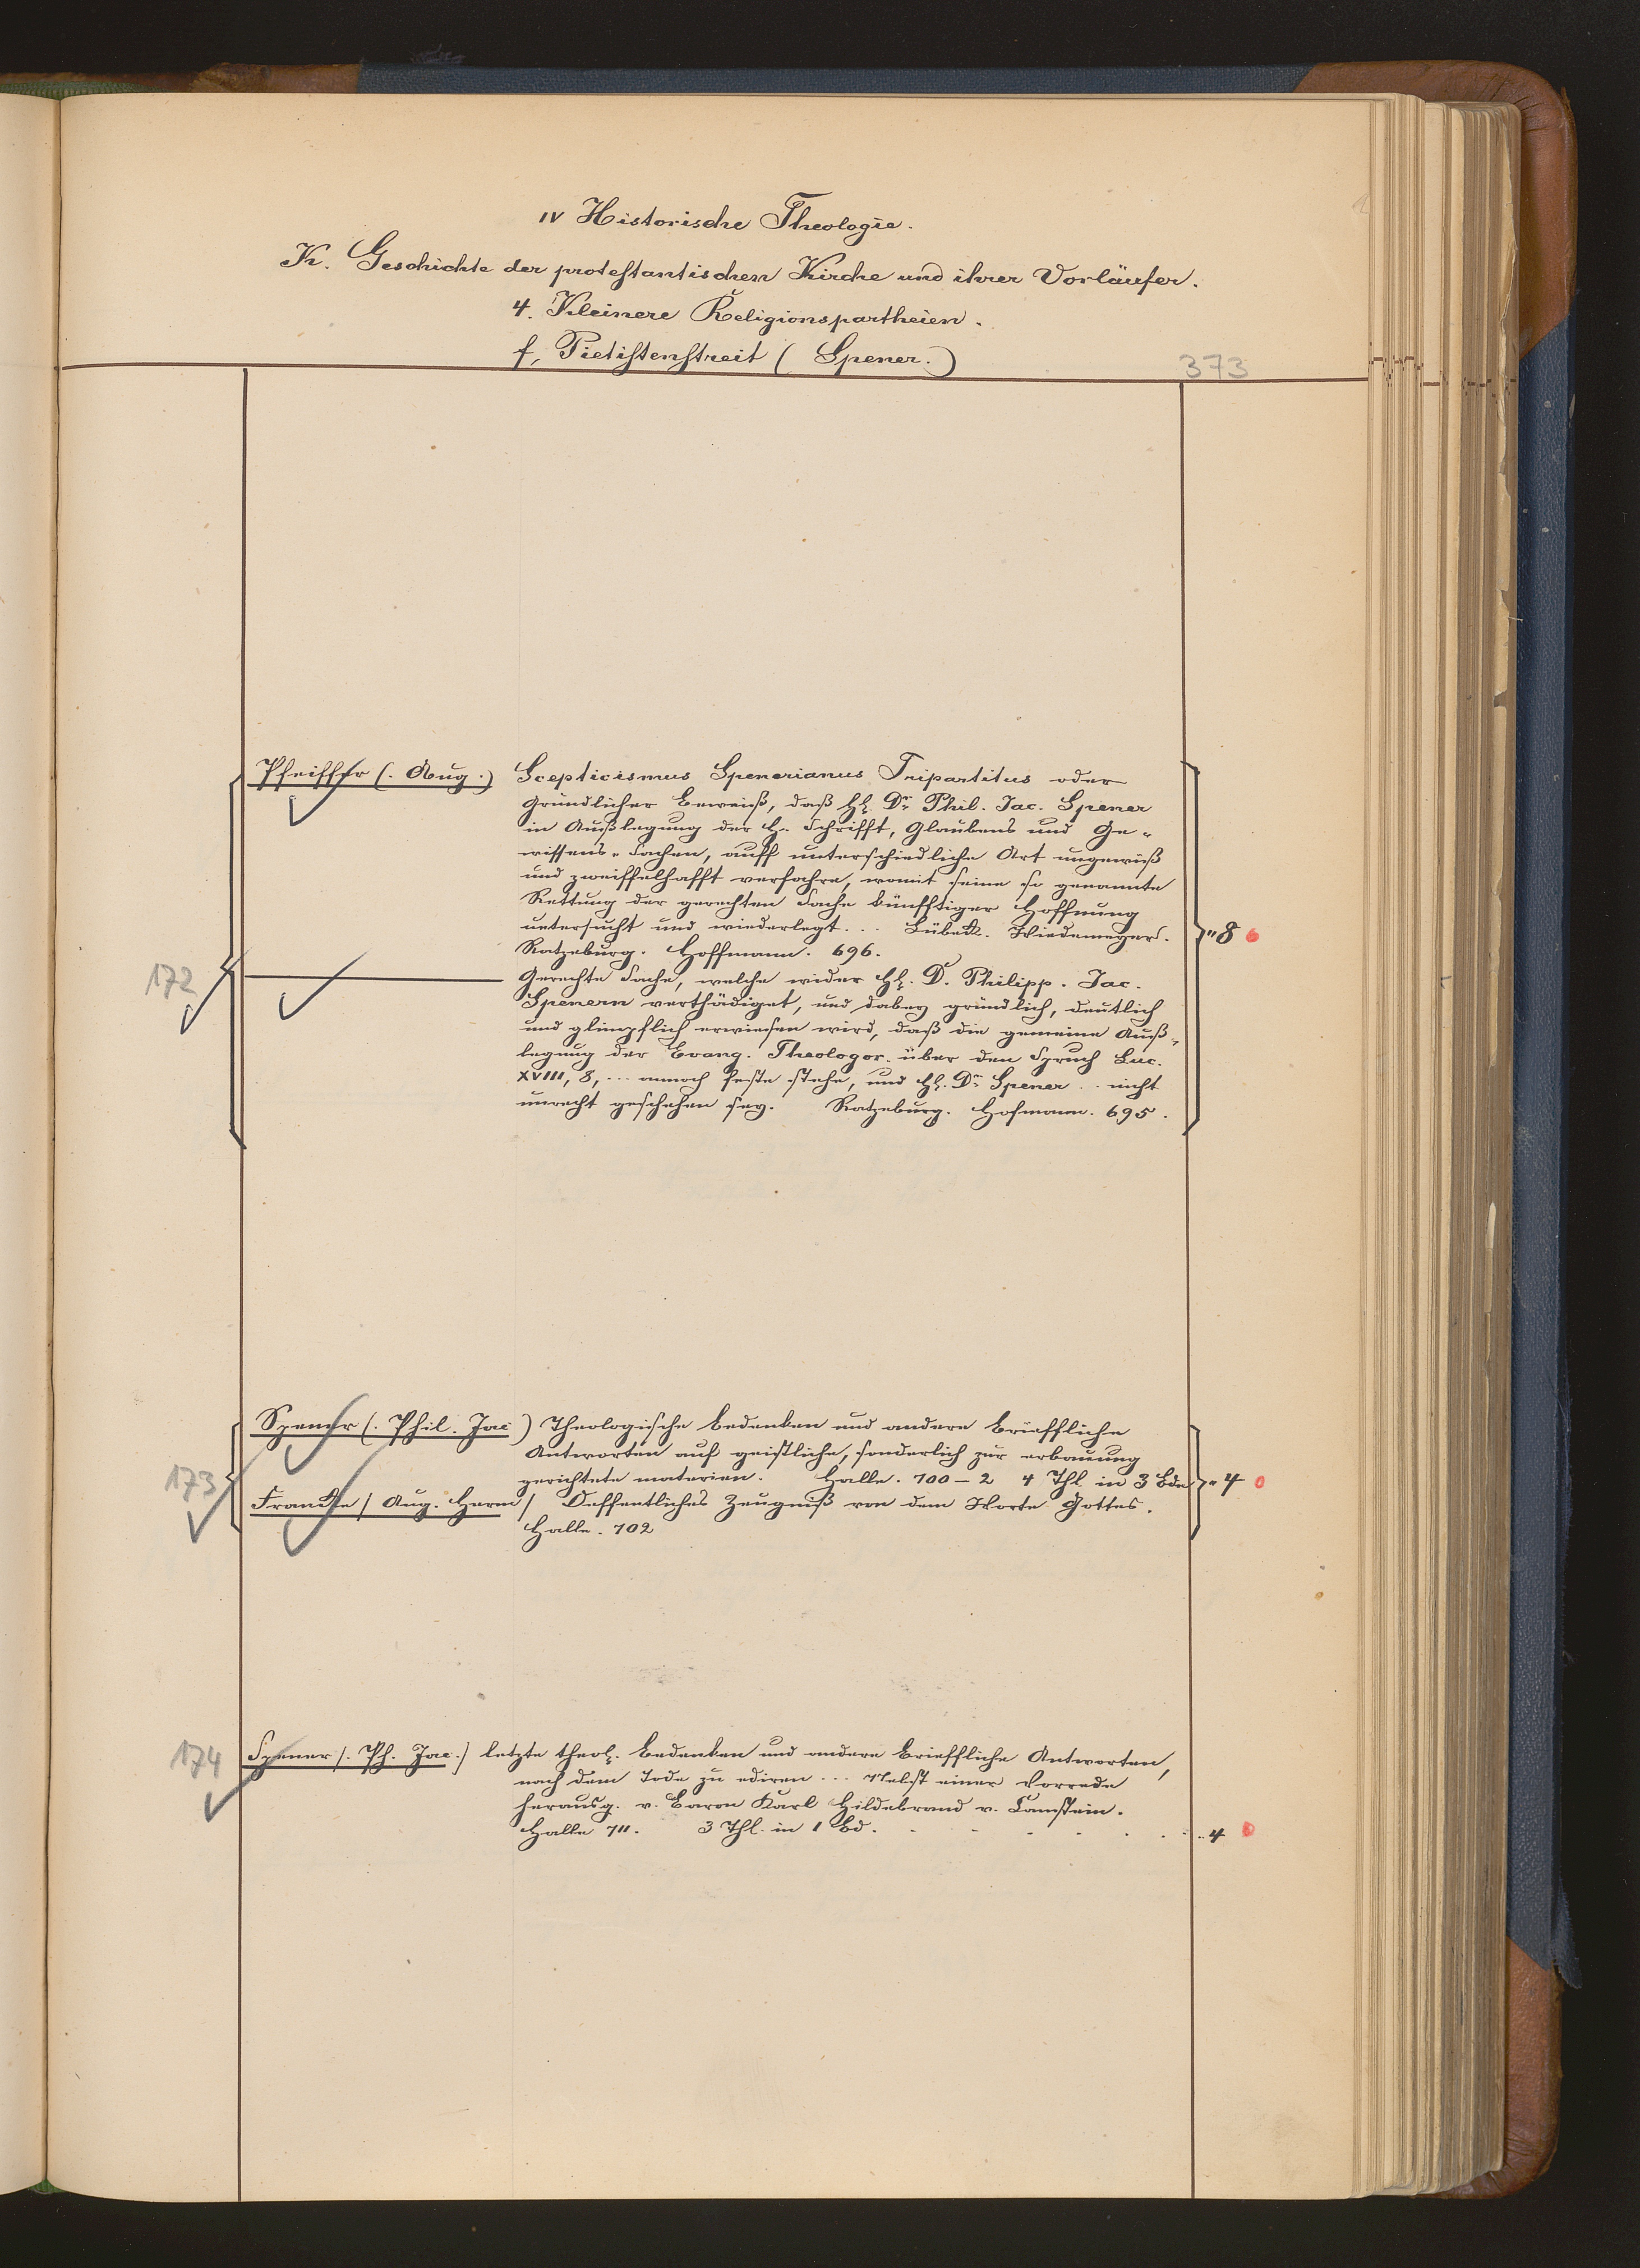 IV Historische Theologie.
K. Geschichte der protestantischen Kirche und ihrer Vorläufer.
4. Kleinere Religionspartheien.
f, Pietistenstreit (Spener.)
373
Pfeiffer (. Aug .) Scepticismus Spenerianus Tripartitus oder
gründlicher Beweiß, daß Hl. Dr. Phil. Jac. Spener
in Außlegung der H. Schrifft, Glaubens und Ge-
wissens-Sachen, auff unterschiedliche Art ungewiß
und zweiffelhafft verfahre, womit seine so genannte
Rettung der gerechten Sache künfftiger Hoffnung
untersucht und wiederlegt... Lübeck. Wiedemeyer.
"8
Ratzeburg. Hoffmann. 696.
172
Gerechte Sache, welche wider Hl. D. Philipp. Jac.
Spenern verthädiget, und dabey gründlich, deutlich
und glimpflich erwiesen wird, daß die gemeine Auß-
legung der Evang. Theologor. über den Spruch Luc.
XVIII, 8, ... annoch feste stehe, und Hl. Dr. Spener .. nicht
unrecht geschehen sey. Ratzeburg. Hofmann. 695.
Spener (. Phil. Jac ) Theologische Bedenken und andere Brieffliche
Antworten auf geistliche, sonderlich zur erbauung
173
gerichtete materien. Halle. 700-2 4 Thl in 3 Bde
"4
Francke / Aug. Herm / Oeffentliches Zeugniß von dem Worte Gottes.
Halle. 702
174
Spener /. Ph. Jac./ letzte theol. Bedenken und andere Brieffliche Antworten,
nach dem Tode zu ediren ... Nebst einer Vorrede
herausg. v. Baron Karl Hildebrand v. Canstein.
Halle 711. 3 Thl. in 1 Bd. . . . . . . . . 4